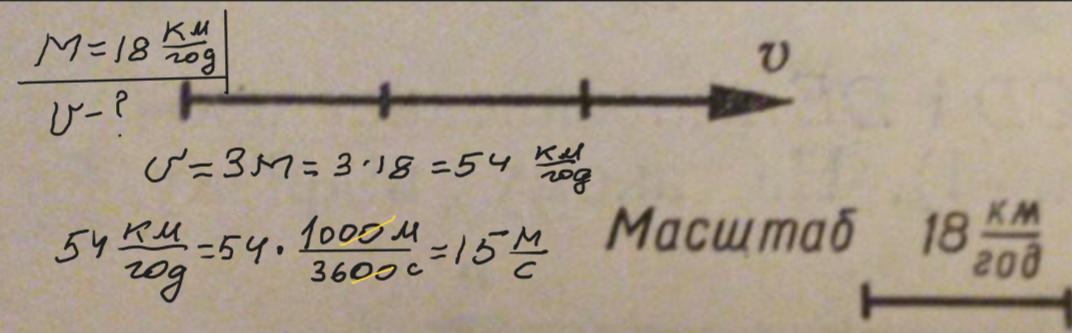 M = 18 км/год
υ - ?
υ
υ = 3M = 3·18 = 54 км/год
54 км/год = 54 · 1000 м/3600 с = 15 м/с
Масштаб 18 км/год